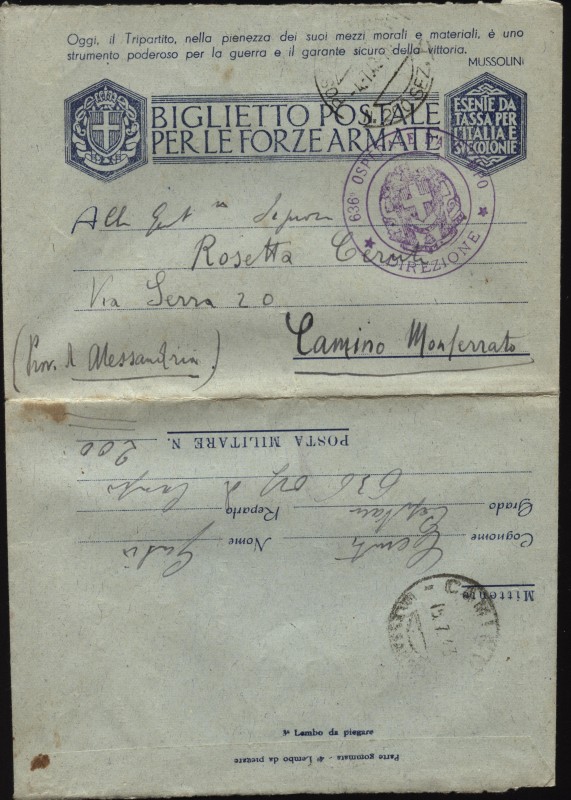 Oggi, il Tripartito, nella pienezza dei suoi mezzi morali e materiali, è uno
strumento poderoso per la guerra e il garante sicuro della vittoria.
MUSSOLINI
BIGLIETTO POSTALE
PER LE FORZE ARMATE
ESENTE DA
TASSA PER
L'ITALIA E
SVE COLONIE
636° OSPEDALE DA CAMPO
DIREZIONE
Alla Gent ma Signora
Rosetta Ceruti
Via Serra 20
Camino Monferrato
(Prov. di Alessandria)
POSTA MILITARE N. 200
Grado Capitano Reparto 636 osp da Campo
Cognome Ceruti Nome
Mittente
CAMINO
15.7.43
3° Lembo da piegare
Parte gommata - 4° Lembo da piegare